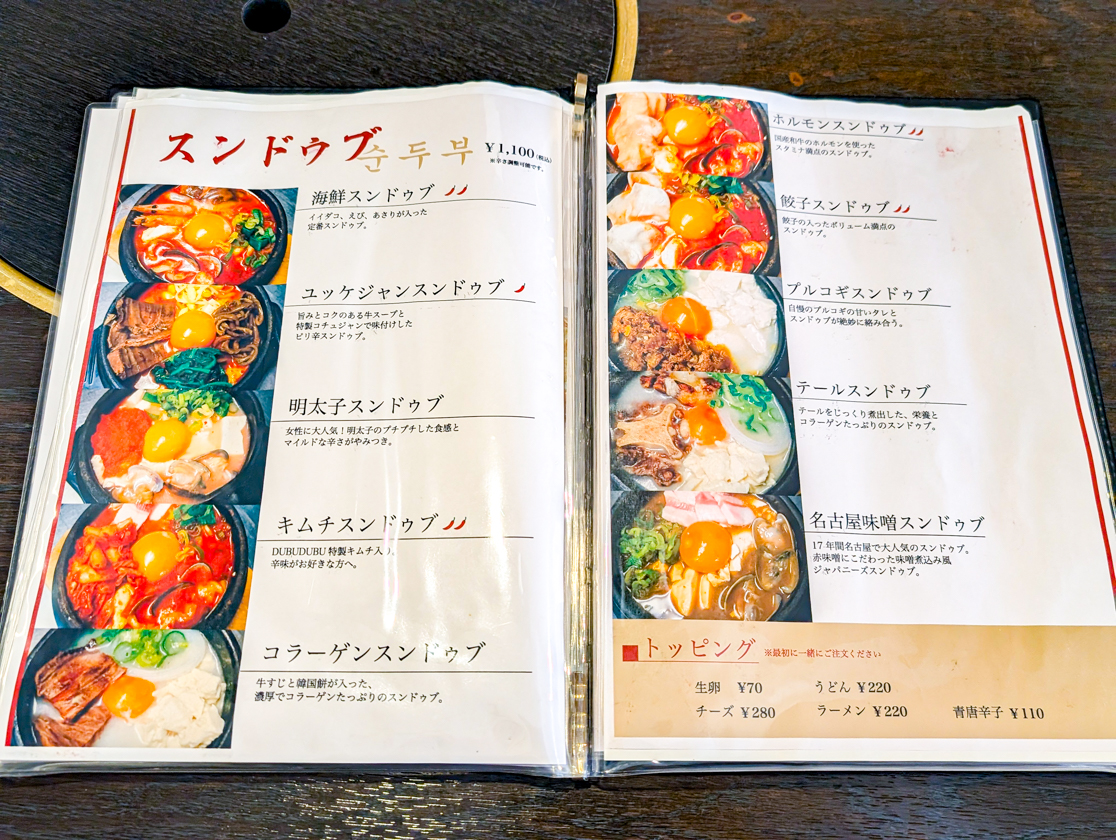 スンドゥブ
순두부
¥1,100(税込)
※辛さ調整可能です。
海鮮スンドゥブ
イイダコ、えび、あさりが入った
定番スンドゥブ。
ユッケジャンスンドゥブ
旨みとコクのある牛スープと
特製コチュジャンで味付けした
ピリ辛スンドゥブ。
明太子スンドゥブ
女性に大人気！明太子のプチプチした食感と
マイルドな辛さがやみつき。
キムチスンドゥブ
DUBUDUBU特製キムチ入り。
辛味がお好きな方へ。
コラーゲンスンドゥブ
牛すじと韓国餅が入った、
濃厚でコラーゲンたっぷりのスンドゥブ。
ホルモンスンドゥブ
国産和牛のホルモンを使った
スタミナ満点のスンドゥブ。
餃子スンドゥブ
餃子の入ったボリューム満点の
スンドゥブ。
プルコギスンドゥブ
自慢のプルコギの甘いタレと
スンドゥブが絶妙に絡み合う。
テールスンドゥブ
テールをじっくり煮出した、栄養と
コラーゲンたっぷりのスンドゥブ。
名古屋味噌スンドゥブ
17年間名古屋で大人気のスンドゥブ。
赤味噌にこだわった味噌煮込み風
ジャパニーズスンドゥブ。
トッピング ※最初に一緒にご注文ください
生卵 ¥70 うどん ¥220
チーズ ¥280 ラーメン ¥220 青唐辛子 ¥110